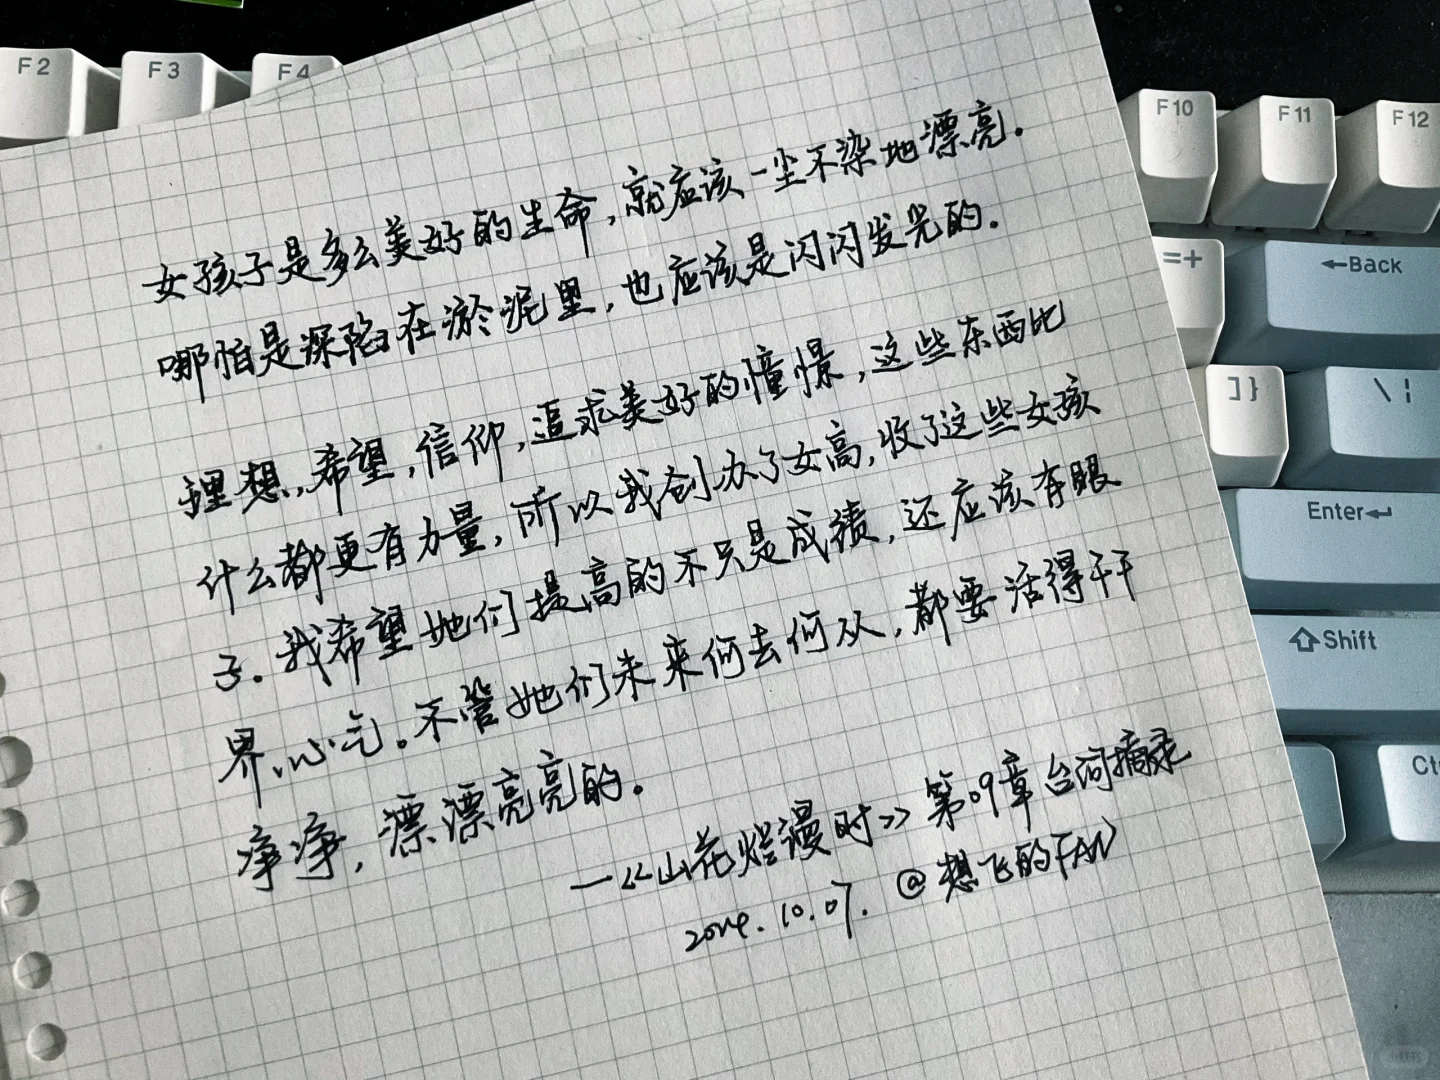 F2 F3 F4 F10 F11 F12
女孩子是多么美好的生命，就应该一尘不染地漂亮.
哪怕是深陷在淤泥里，也应该是闪闪发光的.
理想，希望，信仰，追求美好的憧憬，这些东西比
什么都更有力量，所以我创办了女高，收了这些女孩
子.我希望她们提高的不只是成绩，还应该有眼
界、心气。不管她们未来何去何从，都要活得干干
净净，漂漂亮亮的.
—《山花烂漫时》第09章台词摘录
2024.10.07. @想飞的FAN
=+ ←Back
]} \|
Enter↵
⇧Shift